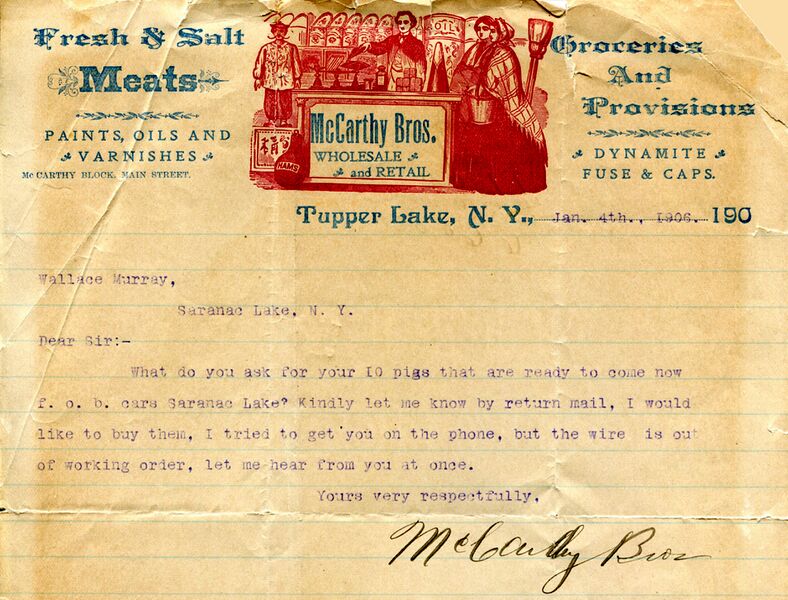 Fresh & Salt
Meats
PAINTS, OILS AND
VARNISHES
McCARTHY BLOCK, MAIN STREET.
OIL
HAMS
McCarthy Bros.
WHOLESALE
and RETAIL
Groceries
And
Provisions
DYNAMITE
FUSE & CAPS.
Tupper Lake, N. Y., Jan. 4th., I906. 190
Wallace Murray,
Saranac Lake, N. Y.
Dear Sir:-
What do you ask for your I0 pigs that are ready to come now
f. o. b. cars Saranac Lake? Kindly let me know by return mail, I would
like to buy them, I tried to get you on the phone, but the wire is out
of working order, let me hear from you at once.
Yours very respectfully,
McCarthy Bros